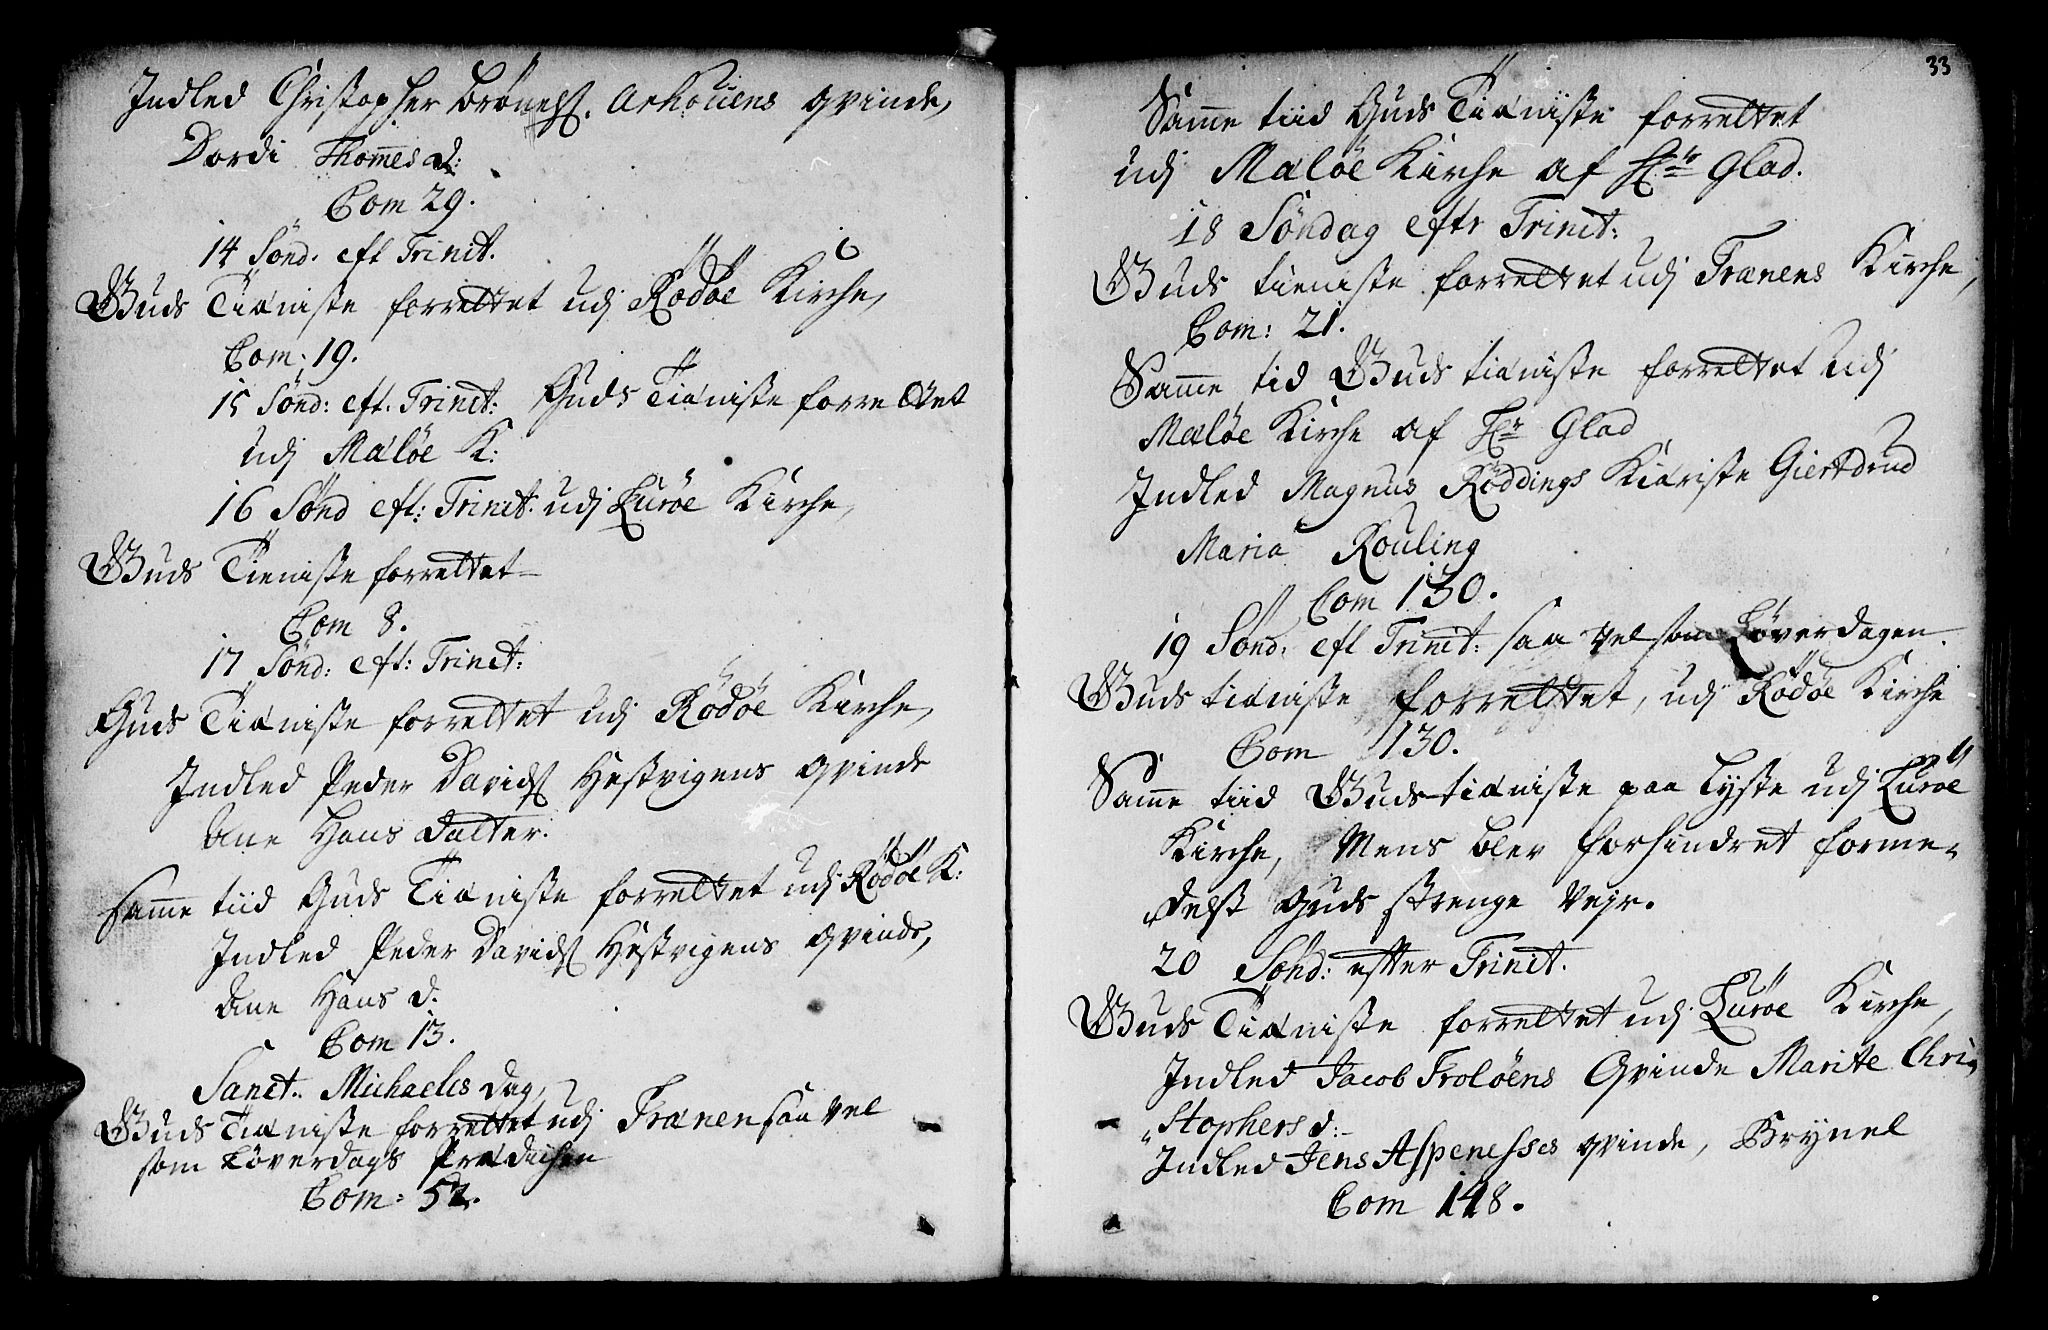 Indled Christopher Brønels. Arhouens qvinde,
Dordi Thomes d:
Com 29.
14 Sönd. eft Trinit.
Guds Tieniste forrettet udj Rödöe Kirche,
Com: 19.
15 Sönd: eft. Trinit: Guds Tieniste forrettet
udj Maløe K:
16 Sönd eft: Trinit: udj Lurøe Kirche,
Guds Tieniste forrettet
Com 8.
17 Sönd: eft: Trinit:
Guds Tieniste forrettet udj Rödöe Kirche,
Indled Peder Davids Hestvigens qvinde
Ane Hans datter.
Samme tiid Guds Tieniste forrettet udj Rödöe K:
Indled Peder Davids Hestvigens qvinde,
Ane Hans d.
Com 13.
Sanct. Michaelis Dag,
Guds Tieniste forrettet udj Trænen saa vel
som Löverdags Prædichen
Com: 52.
33
Samme tiid Guds Tieniste forrettet
udj Maløe Kirche af Hr Glad.
18 Söndag eftr Trinit:
Guds tieniste forrettet udj Trænens Kirche,
Com: 21.
Samme tid Guds tieniste forrettet udj
Maløe Kirche af Hr Glad
Indled Magnus Röddings Kieriste Giertdrud
Maria Rouling
Com 130.
19 Sönd: eft Trinit: saa vel som Löverdagen
Guds tieniste forrettet, udj Rödöe Kirche
Com 130.
Samme tiid Guds tieniste paa Lyste udj Luröe
Kirche, Mens blev forhindret forme-
delst Guds strenge Vejr.
20 Sönd: efter Trinit.
Guds Tieniste forrettet udj Lurøe Kirche,
Indled Jacob Froløens Qvinde Marite Chri-
stophers d:
Indled Jens Aspenesses qvinde, Brynel
Com 148.